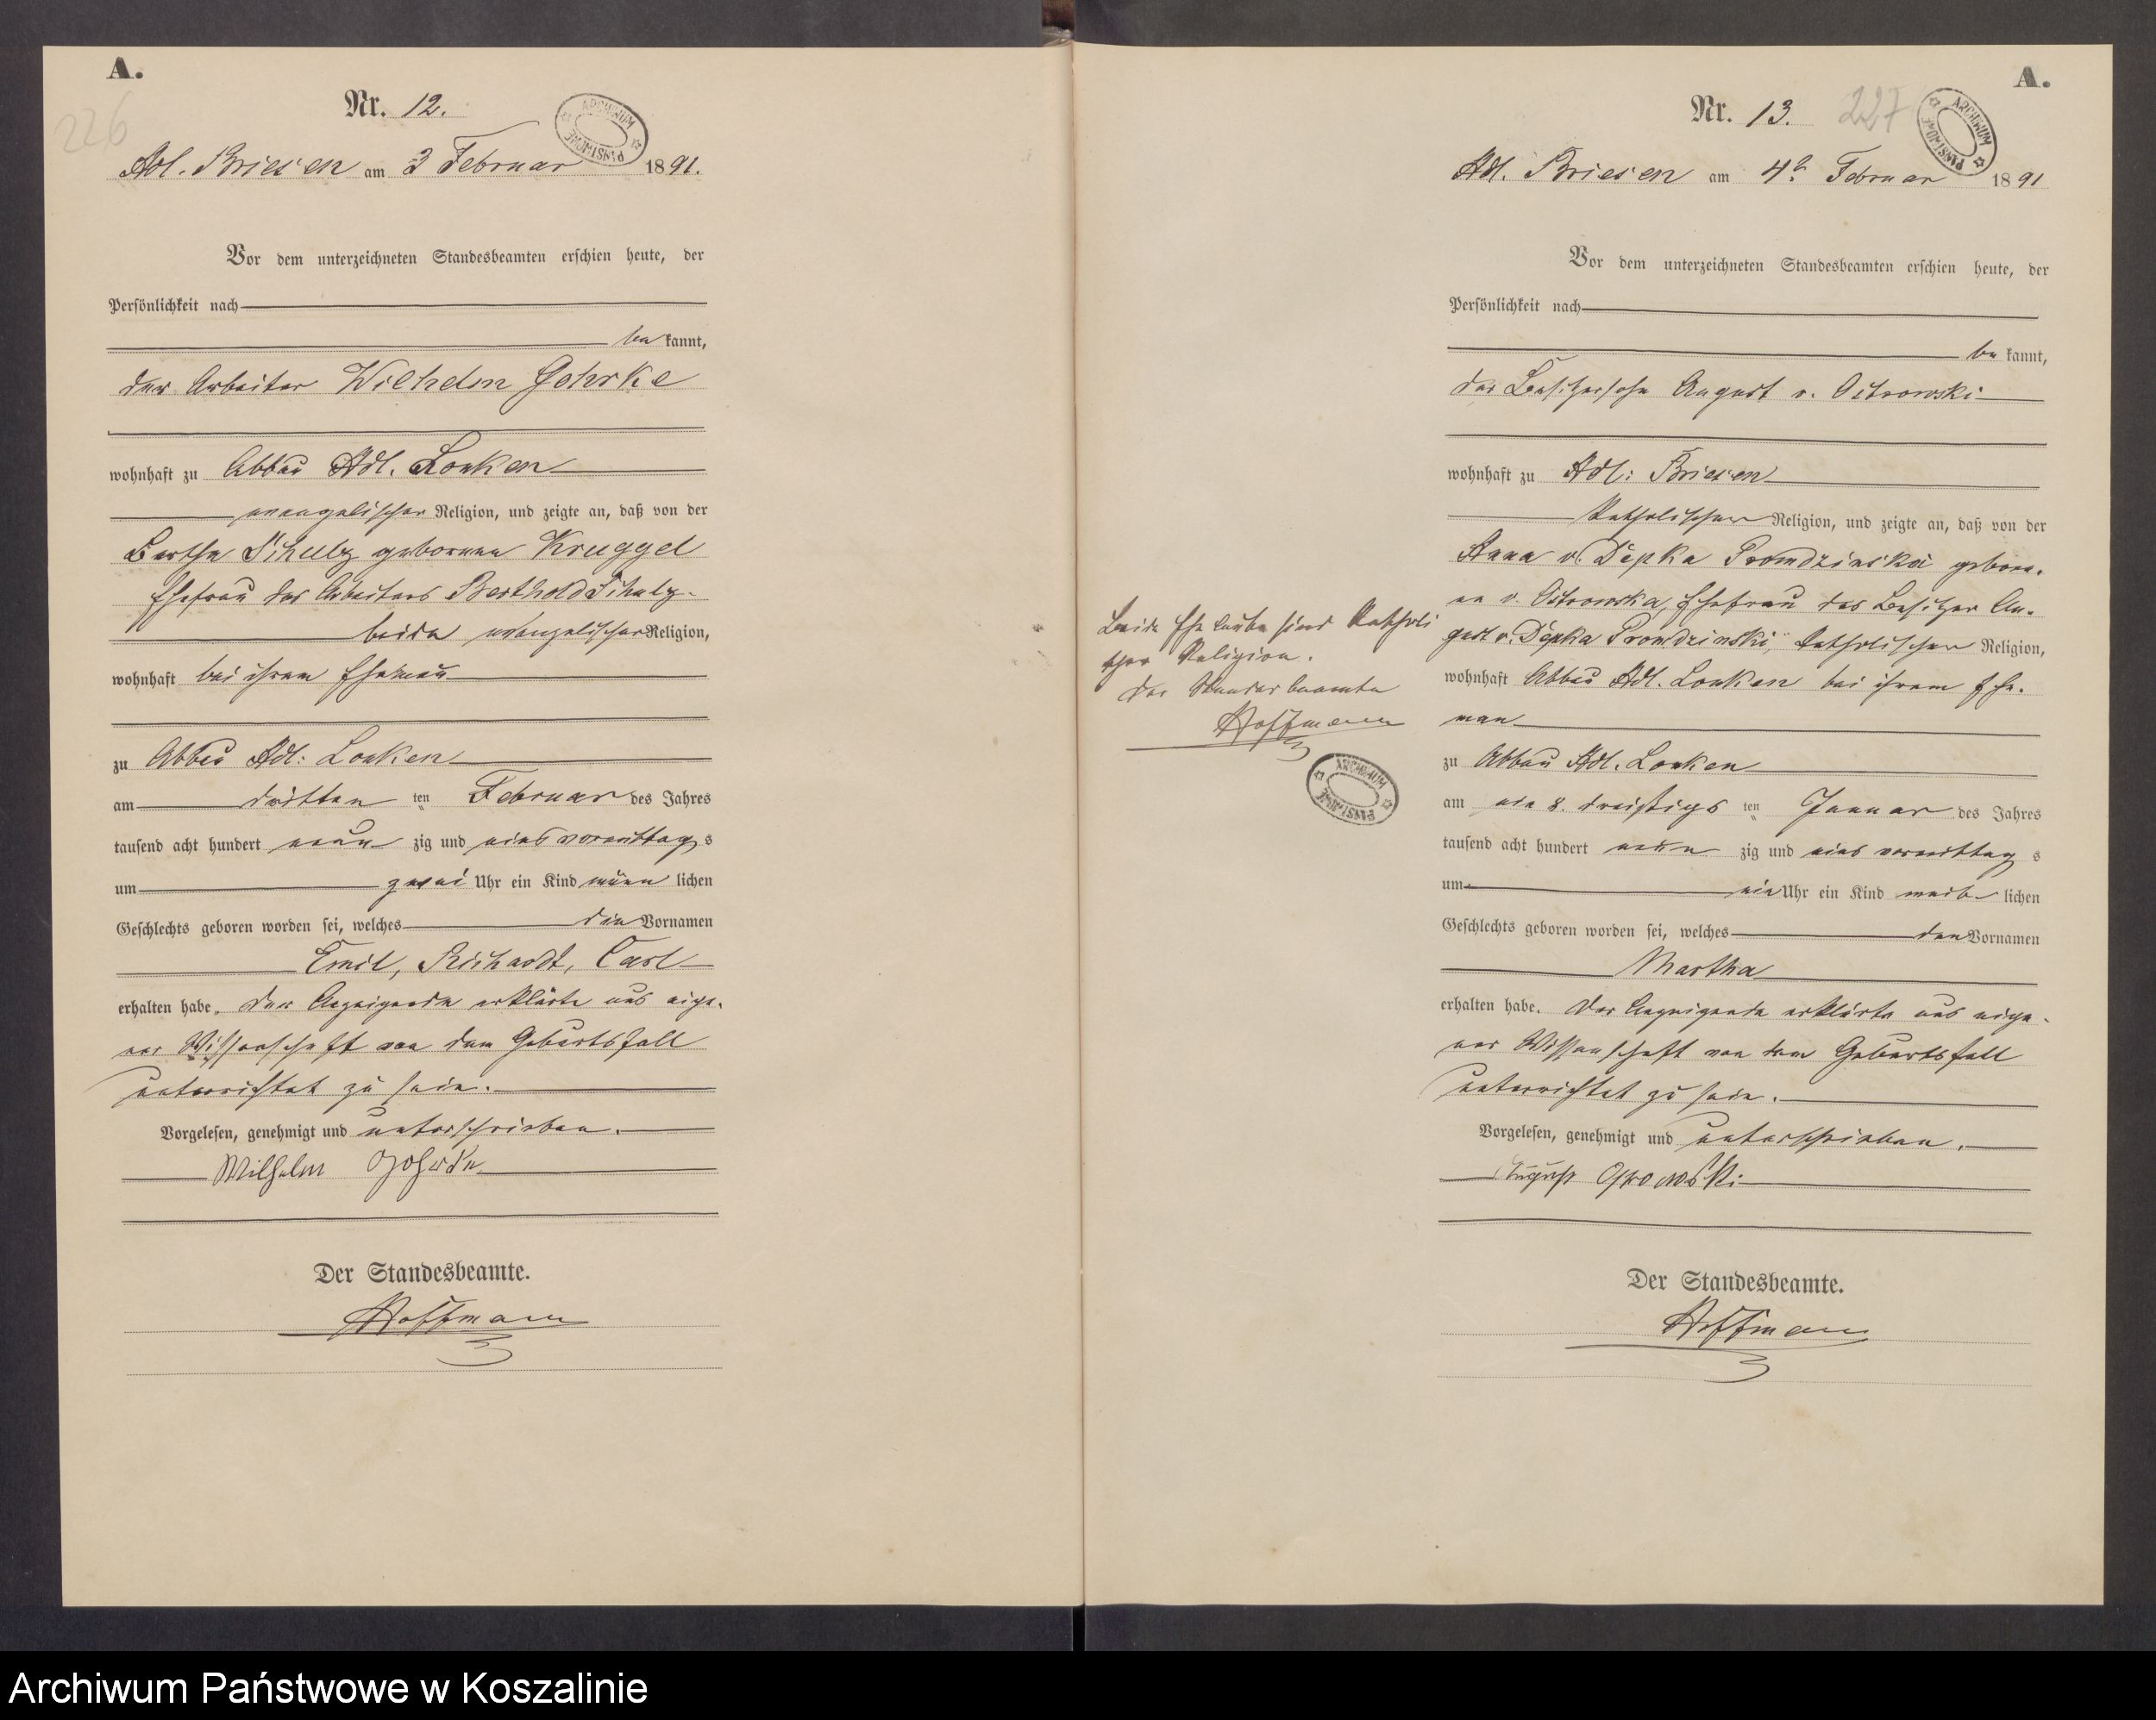 A.
226
Nr. 12.
ARCHIWUM PAŃSTWOWE
Adl. Briesen am 3 Februar 1891.
Vor dem unterzeichneten Standesbeamten erschien heute, der
Persönlichkeit nach
be kannt,
der Arbeiter Wilhelm Gehrke
wohnhaft zu Abbau Adl. Lonken
evangelischer Religion, und zeigte an, daß von der
Bertha Schulz geborenen Kruggel
Ehefrau des Arbeiters Berthold Schulz
beide evangelischer Religion,
wohnhaft bei ihrem Ehemann
zu Abbau Adl: Lonken
am dritten ten Februar des Jahres
tausend acht hundert neun zig und eins vormittag s
um zwei Uhr ein Kind männ lichen
Geschlechts geboren worden sei, welches die Vornamen
Emil, Richardt, Carl
erhalten habe. Der Anzeigende erklärte aus eige-
ner Wissenschaft von dem Geburtsfall
unterrichtet zu sein.
Vorgelesen, genehmigt und unterschrieben.
Wilhelm Gehrke
Der Standesbeamte.
Hoffmann
A.
Nr. 13. 227
ARCHIWUM PAŃSTWOWE
Adl. Briesen am 4t Februar 1891
Vor dem unterzeichneten Standesbeamten erschien heute, der
Persönlichkeit nach
be kannt,
der Besitzersohn August v. Ostrowski
wohnhaft zu Adl: Briesen
Katholischer Religion, und zeigte an, daß von der
Anna v. Depka Prondzinska gebore-
nen v. Ostrowska, Ehefrau des Besitzer Au-
gust v. Depka Prondzinski, katholischer Religion,
wohnhaft Abbau Adl. Lonken bei ihrem Ehe-
man
zu Abbau Adl. Lonken
am ein u. dreißigs ten Januar des Jahres
tausend acht hundert neun zig und eins vormittag s
um ein Uhr ein Kind weib lichen
Geschlechts geboren worden sei, welches den Vornamen
Martha
erhalten habe. Der Anzeigende erklärte aus eige-
ner Wissenschaft von dem Geburtsfall
unterrichtet zu sein.
Vorgelesen, genehmigt und unterschrieben.
August Ostrowski
Der Standesbeamte.
Hoffmann
Beide Eheleute sind Katholi
scher Religion.
Der Standesbeamte
Hoffmann
ARCHIWUM PAŃSTWOWE
Archiwum Państwowe w Koszalinie